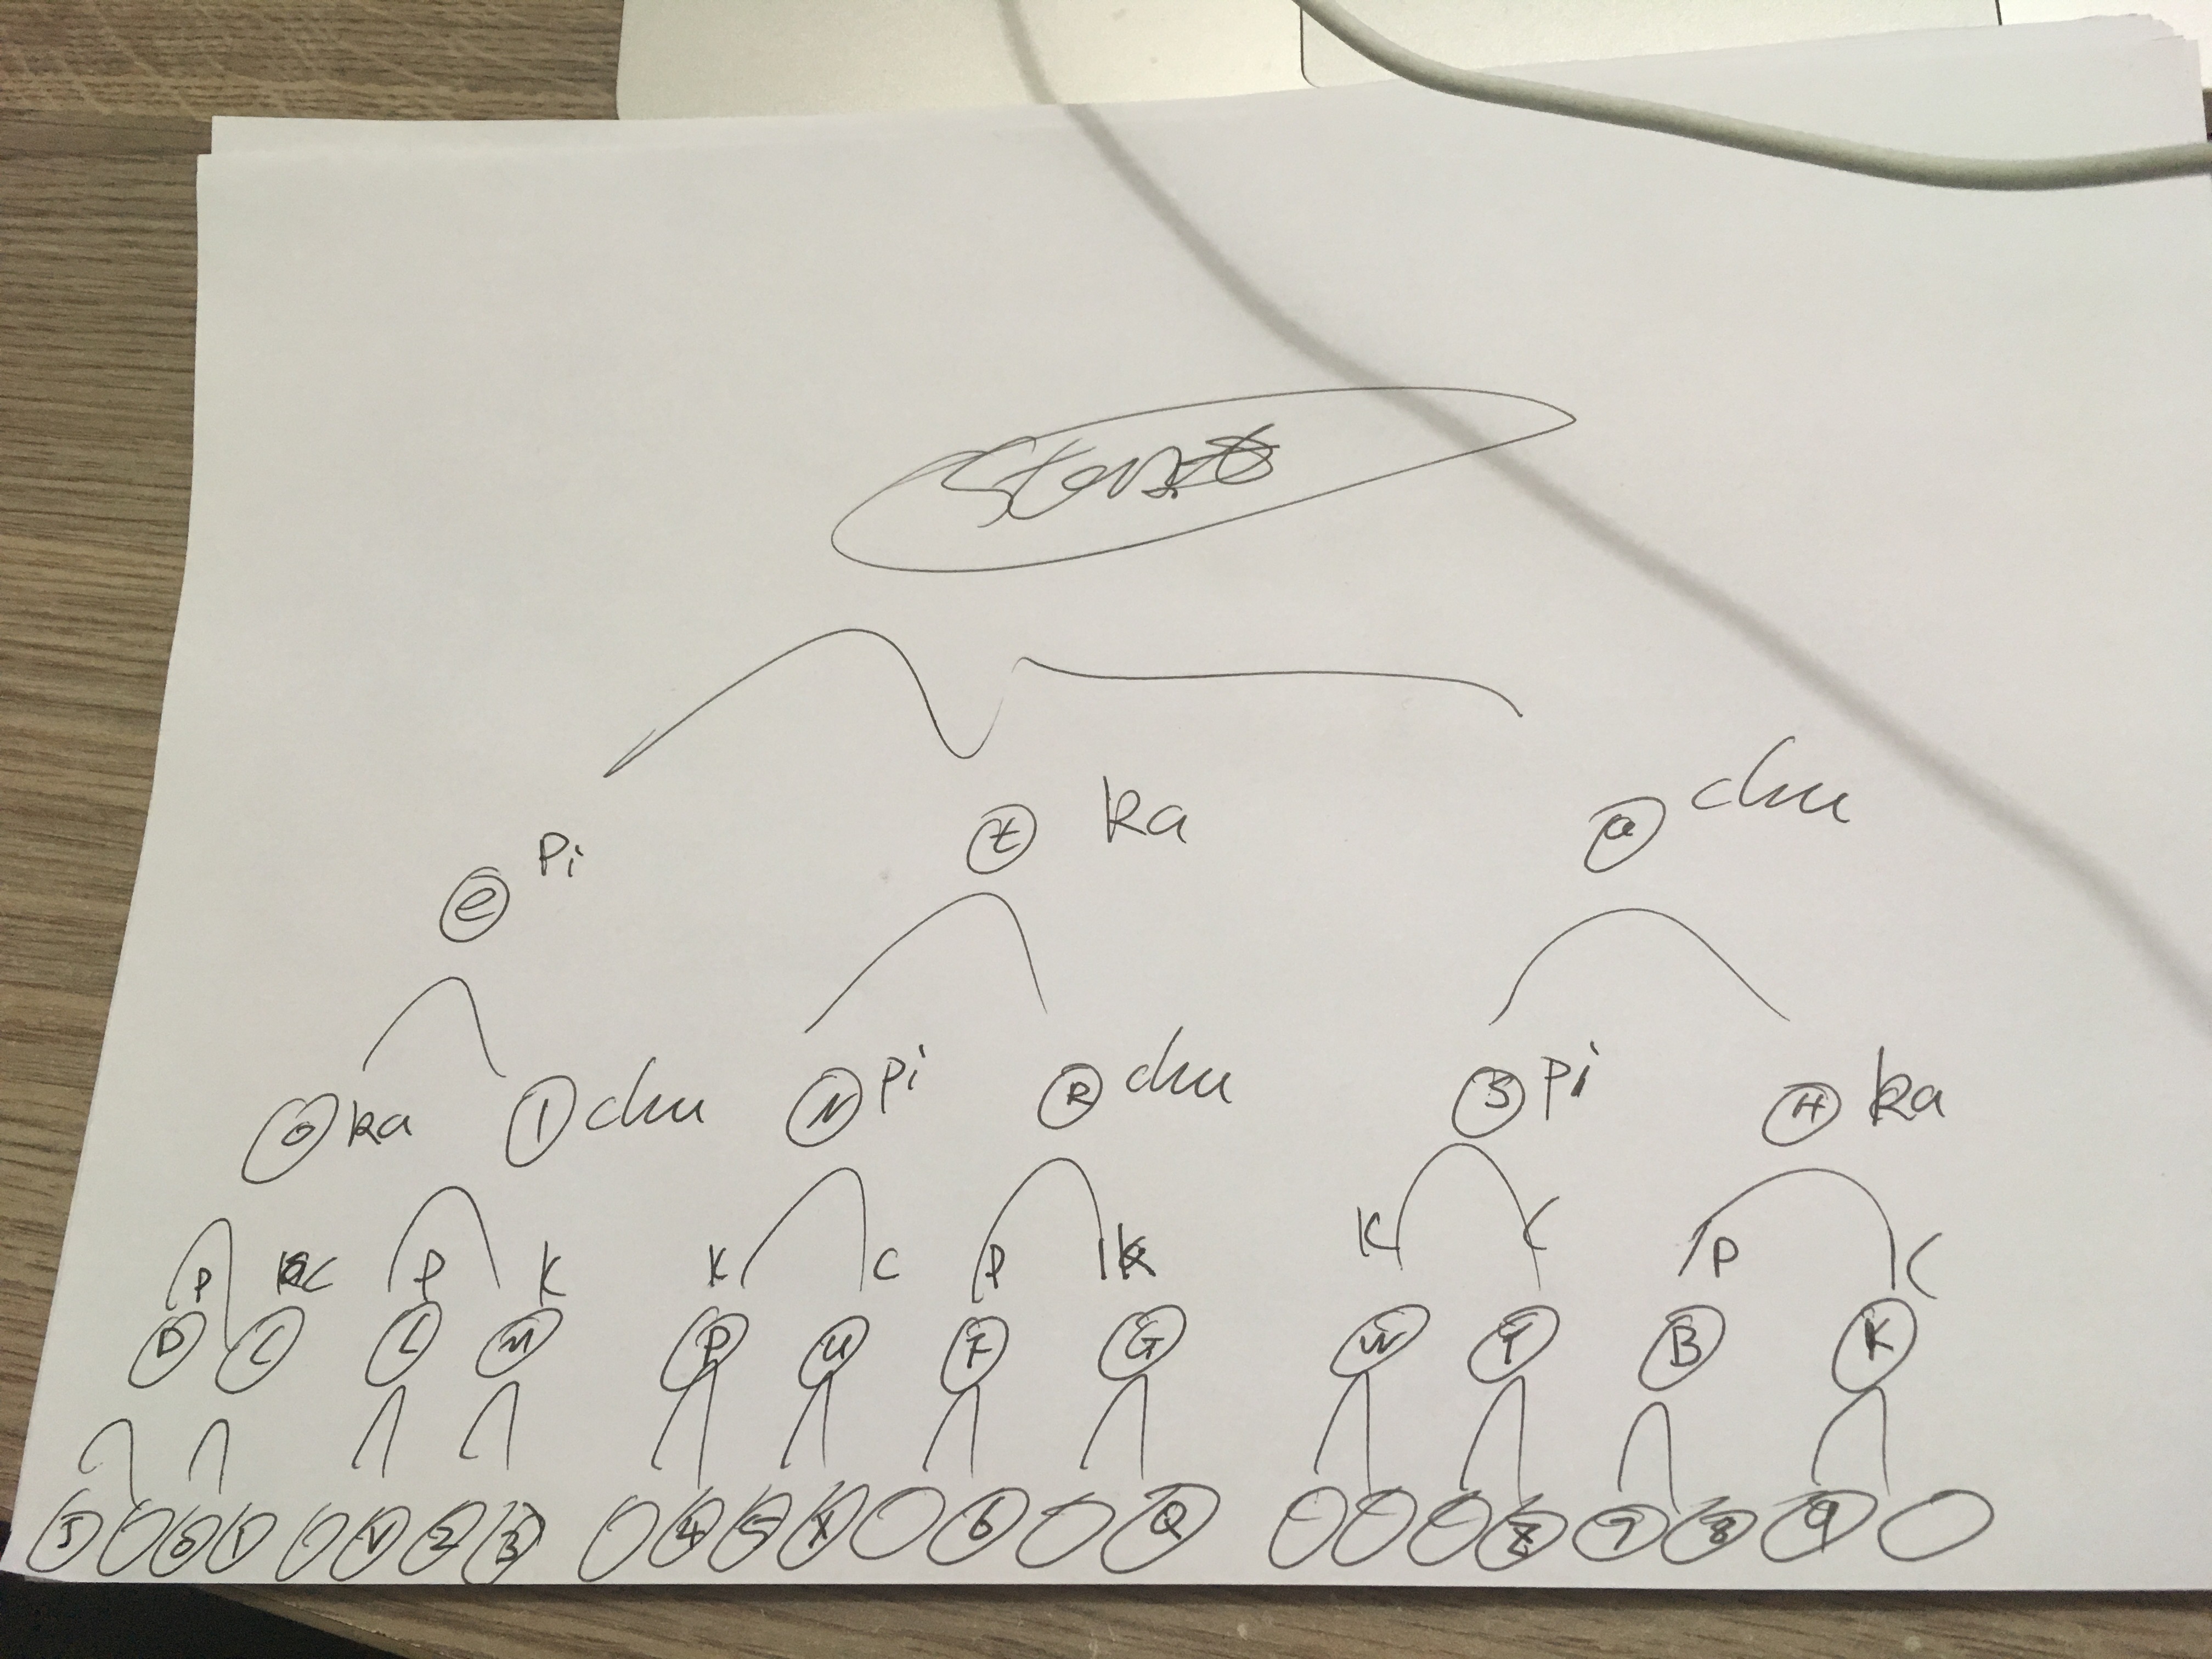 Start
e Pi t ka a chu
o ka I chu N Pi R chu S Pi H ka
P C P K K C P K K C P C
D C L M P U F G W Y B K
J 0 1 V 2 3 4 5 X 6 Q Z 7 8 9